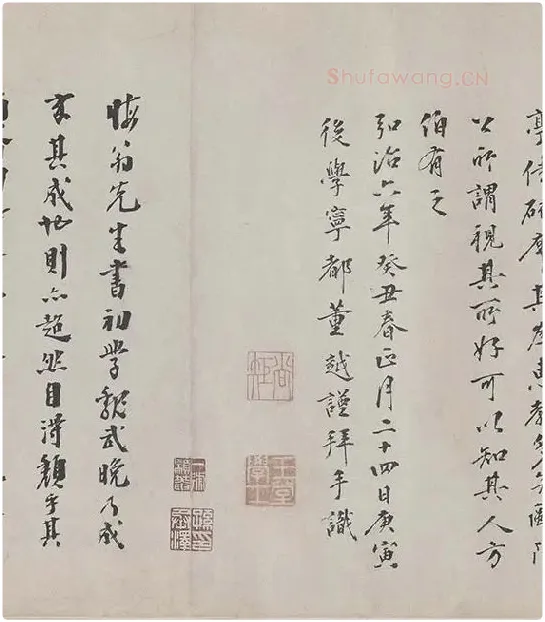 Shufawang.CN
公所謂視其所好可以知其人方
伯有之
弘治六年癸丑春正月二十四日庚寅
後學寧都董越謹拜手識
尚矩
玉堂學士
晦翁先生書初學魏武晚乃成
家其成也則亦超然自得類乎其